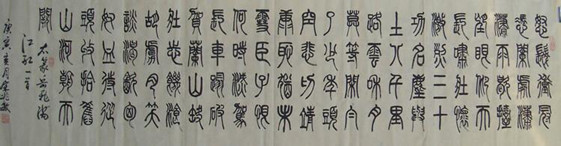 怒髮衝冠
憑闌處瀟
瀟雨歇抬
望眼仰天
長嘯壯懷
激烈三十
功名塵與
土八千里
路雲和月
莫等閑白
了少年頭
空悲切靖
康恥猶未
雪臣子恨
何時滅駕
長車踏破
賀蘭山缺
壯志飢餐
胡虜肉笑
談渴飲匈
奴血待從
頭收拾舊
山河朝天
闕
岳飛滿
江紅一首
庚寅 月